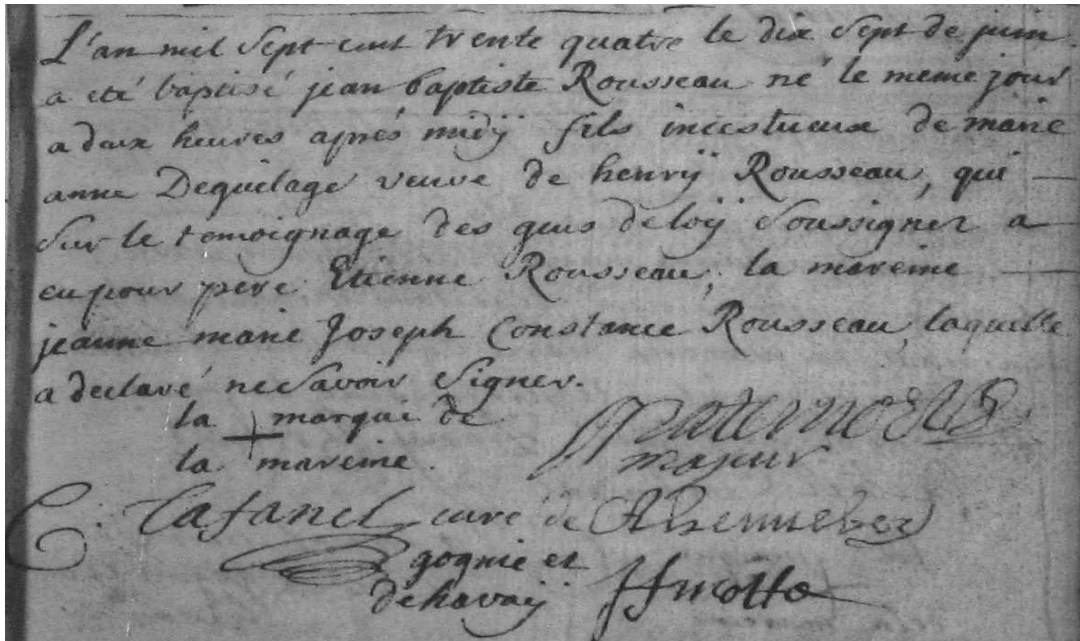 L'an mil sept cent trente quatre le dix sept de juin
a eté baptisé jean baptiste Rousseau né le meme jour
a deux heures aprés midÿ fils incestueux de marie
anne Dequelage veuve de henrÿ Rousseau, qui
sur le temoignage des gens de loÿ soussignez a
eu pour pere Etienne Rousseau, la mareine
jeanne marie Joseph Constance Rousseau, laquelle
a declaré ne savoir signer.
la marque de
la mareine.
majeur
Lafanel curé de
gognie et
dehavaÿ